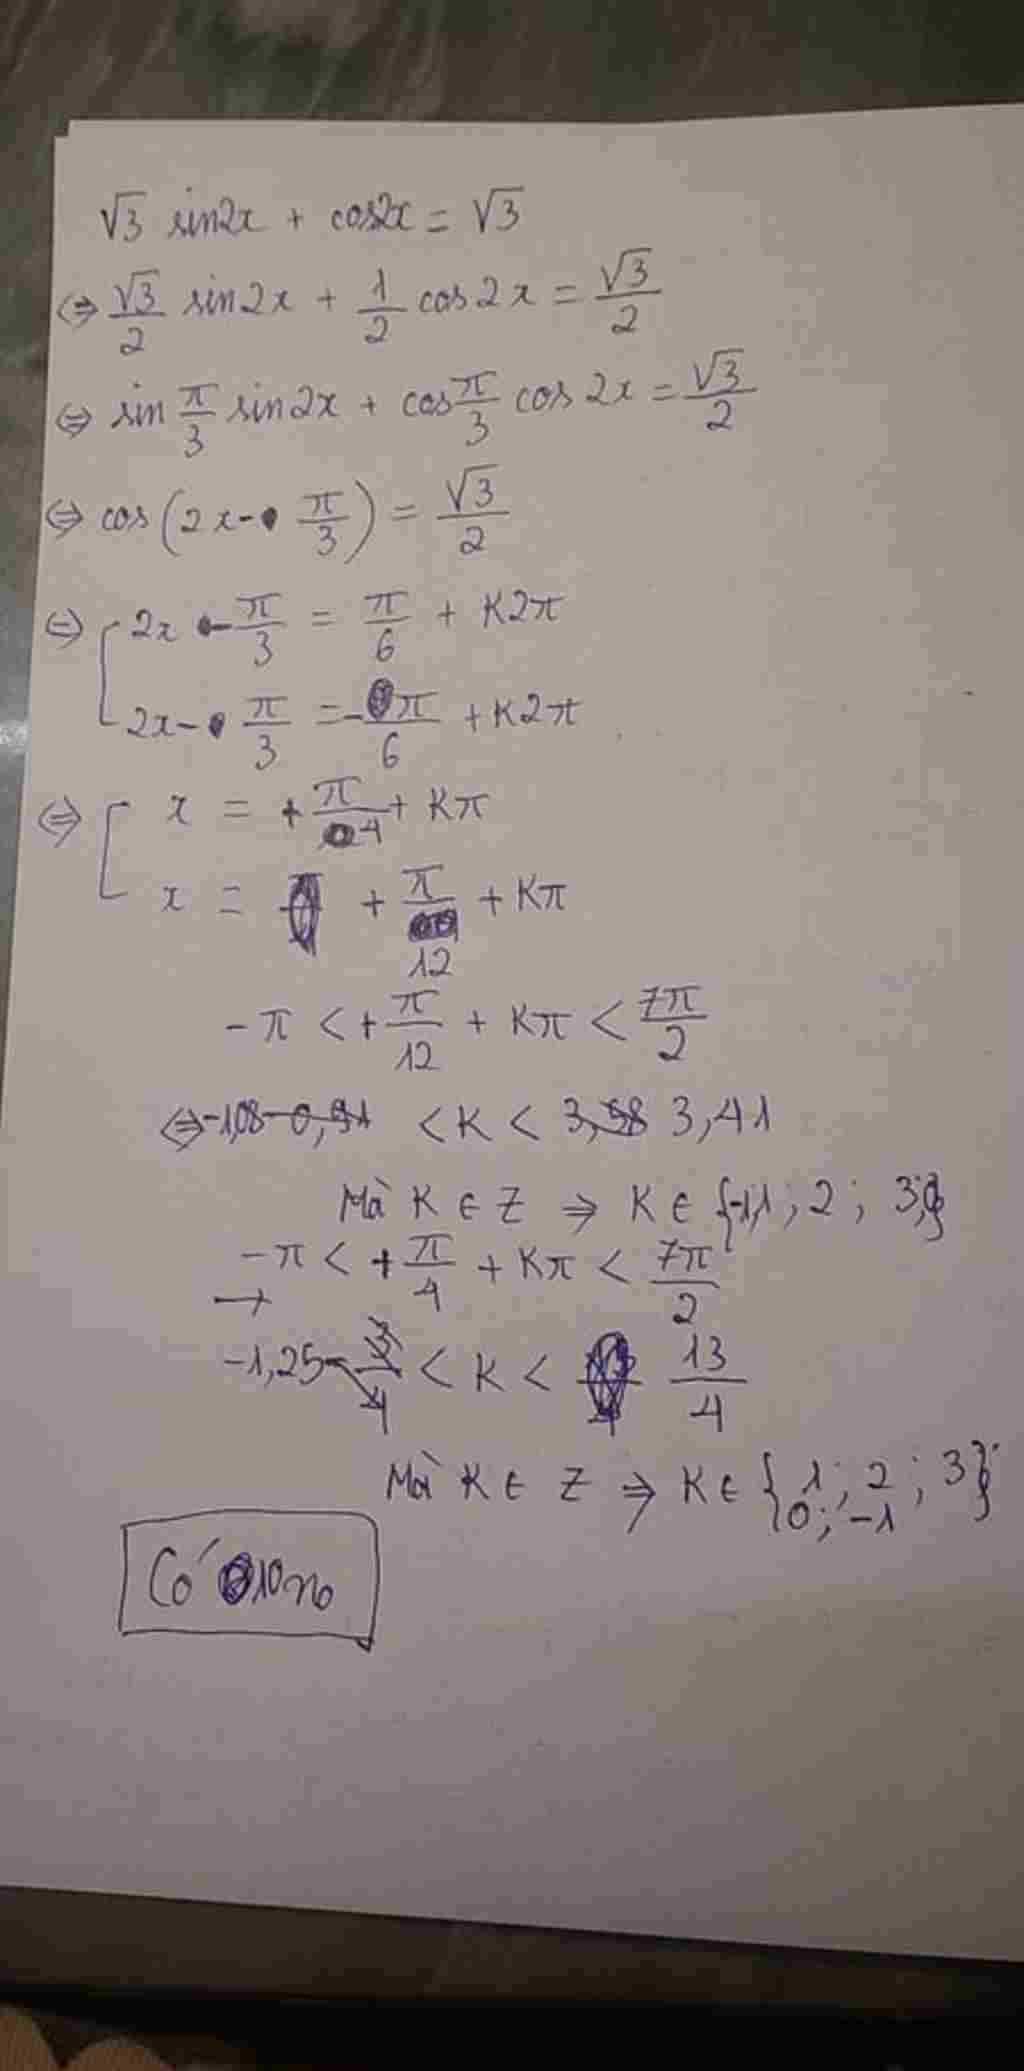 √3 sin2x + cos2x = √3
⇔ √3/2 sin2x + 1/2 cos2x = √3/2
⇔ sin π/3 sin2x + cos π/3 cos 2x = √3/2
⇔ cos(2x - π/3) = √3/2
⇔ [ 2x - π/3 = π/6 + K2π
2x - π/3 = -π/6 + K2π
⇔ [ x = + π/4 + Kπ
x = + π/12 + Kπ
-π < + π/12 + Kπ < 7π/2
⇔ -1,08 < K < 3,41
Mà K ∈ Z ⇒ K ∈ {-1,1; 2; 3;0}
-π < + π/4 + Kπ < 7π/2
→
-1,25 < K < 13/4
Mà K ∈ Z ⇒ K ∈ {1; 2; 3}
0; -1
Có 10 no